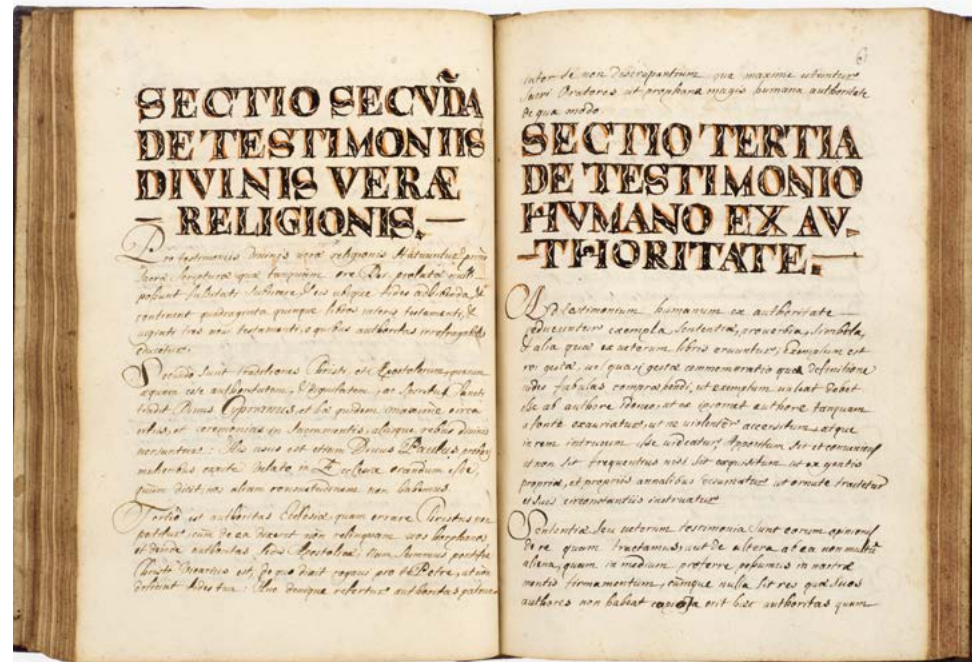 SECTIO SECVDÃ
DE TESTIMONIIS
DIVINIS VERÆ
RELIGIONIS.
Pro testimoniis divinis veræ religionis statuuntur primo
sacræ scripturæ quæ tanquam ore Dei prolatæ
continent quadraginta quinque libros veteris testamenti, &
viginti tres novi testamenti, e quibus authoritas irrefragabilis
educitur.
Secundo sunt traditiones Christi, et Apostolorum, quarum
æquam esse authoritatem, & dignitatem, ac Spiritus Sancti
tradit Divus Cyprianus, et hæ quidem maxime circa
ritus, et ceremonias in Sacramentis, aliisque rebus divinis
versantur. His usus est etiam Divus Paullus,
mulieribus capite velato in Ecclesia orandum esse,
quum dicit, nos aliam consuetudinem non habemus
Tertio est authoritas Ecclesiæ, quam errare Christus non
patitur, cum de ea dixerit non relinquam vos orphanos
et deinde authoritas Sedis Apostolicæ; Nam Summus pontifex
Christi Vicarius est, de quo dicit rogavi pro te Petre, ut non
deficiat fides tua. Huc denique refertur authoritas
6
inter se non discrepantium qua maxime utuntur
Sacri Oratores ut prophani magis humana authoritate
de qua modo.
SECTIO TERTIA
DE TESTIMONIO
HVMANO EX AV-
THORITATE.
Ad testimonium humanum ex authoritate
reducuntur exempla, sententiæ, proverbia, simbola,
& alia quæ ex veterum libris eruuntur; Exemplum est
rei gestæ, vel quasi gestæ commemoratio qua definitione
vides fabulas comprehendi, ut exemplum valeat debet
esse ab authore idoneo, ut ex ipsomet authore tanquam
a fonte exauriatur, ut ne violenter accersitum atque
in rem intrusum esse videatur, Appositum sit et conveniens
ut non sit frequentius nisi sit exquisitum, ut ex gentis
propriæ, et propriis annalibus ut ornate tractetur
et suis circonstantiis instruatur
Sententiæ seu veterum testimonia sunt eorum opiniones
de re quam tractamus, aut de altera at ea non multum
aliena, quum in medium proferre possumus in nostræ
mentis firmamentum, cumque nulla sit res quæ suos
authores non habeat copiosa erit hæc authoritas quam